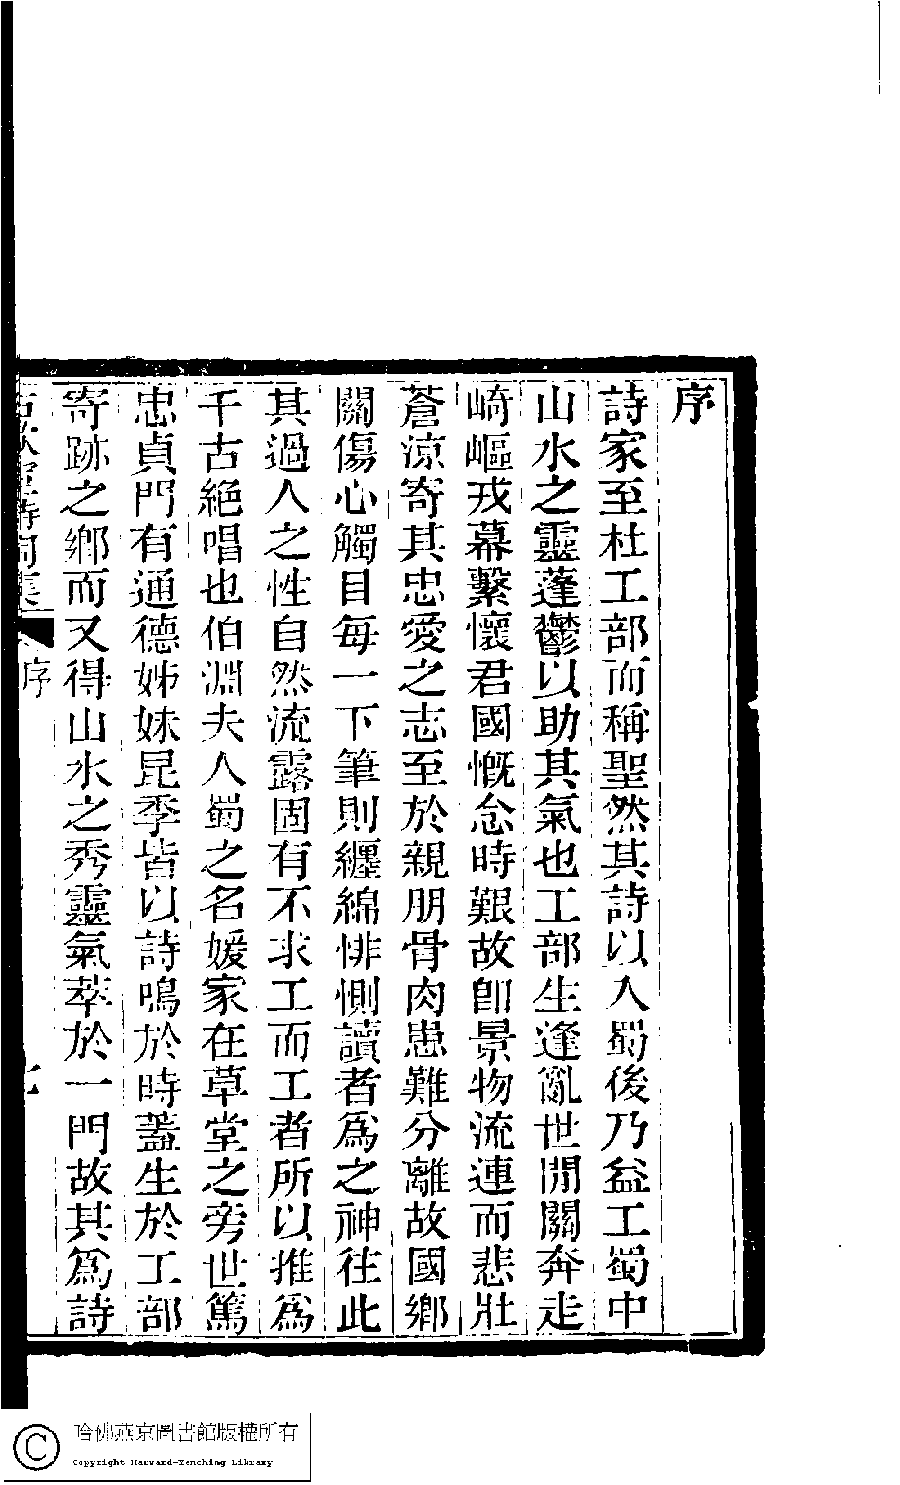 序
詩家至杜工部而稱聖然其詩以入蜀後乃益工蜀中
山水之靈蓬鬱以助其氣也工部生逢亂世閒關奔走
崎嶇戎幕繫懷君國慨念時艱故卽景物流連而悲壯
蒼涼寄其忠愛之志至於親朋骨肉患難分離故國鄉
關傷心觸目每一下筆則纏綿悱惻讀者爲之神往此
其過人之性自然流露固有不求工而工者所以推爲
千古絕唱也伯淵夫人蜀之名媛家在草堂之旁世篤
忠貞門有通德姊妹昆季皆以詩鳴於時蓋生於工部
寄跡之鄉而又得山水之秀靈氣萃於一門故其爲詩
詩詞集
序
哈佛燕京圖書館版權所有
Copyright Harvard-Yenching Library